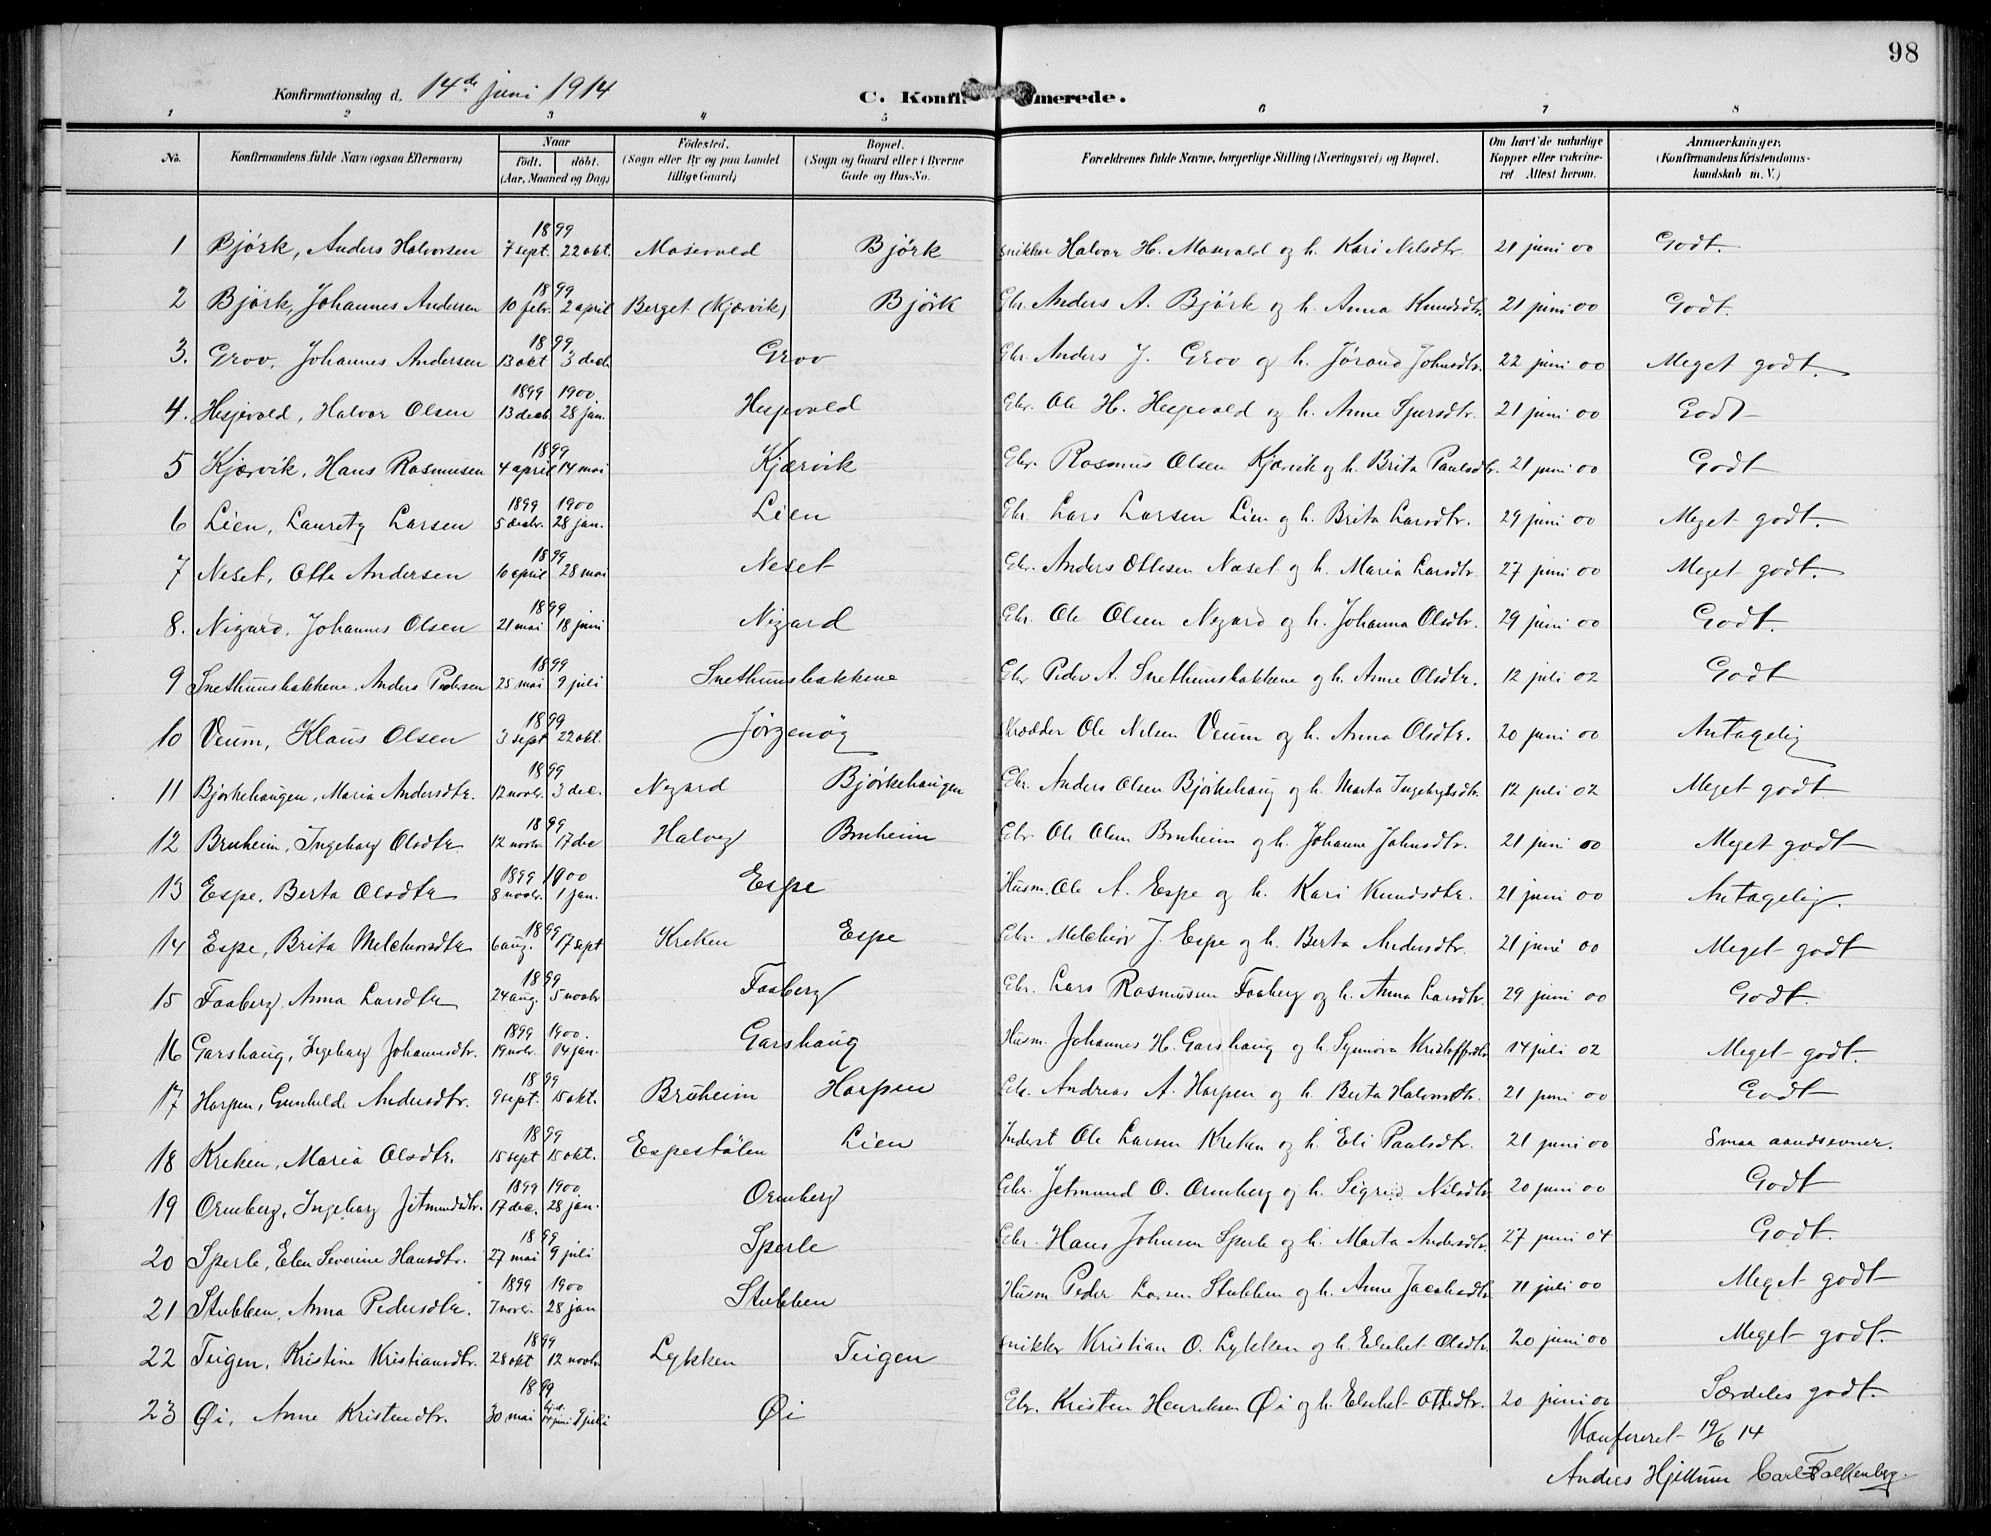 98
Konfirmationsdag d. 14de juni 1914 C. Konfirmerede.
1 2 3 4 5 6 7 8
No. Konfirmandens fulde Navn (ogsaa Efternavn) Naar født. døbt. (Aar, Maaned og Dag) Fødested. (Sogn eller By og paa Landet tillige Gaard) Bopæl. (Sogn og Gaard eller i Byerne Gade og Hus-No. Forældrenes fulde Navne, borgerlige Stilling (Næringsvei) og Bopæl. Om havt de naturlige Kopper eller vakcineret Attest herom. Anmærkninger. (Konfirmandens Kristendomskundskab m. V.)
1 Bjørk, Anders Halvorsen 1899 7 sept. 22 okt. Mosevold Bjørk Snikker Halvor H. Mosevold og h. Kari Nilsdtr. 21 juni 00 Godt.
2 Bjørk, Johannes Andersen 1899 10 febr. 2 april Berget (Kjærvik) Bjørk Gbr. Anders A. Bjørk og h. Anna Knudsdtr. 21 juni 00 Godt.
3. Grov, Johannes Andersen 1899 13 okt 3 decb Grov Gbr. Anders J. Grov og h. Jørand Johnsdtr. 22 juni 00 Meget godt.
4. Hesjevold, Halvor Olsen 1899 1900 13 decb. 28 jan. Hesjevold Gbr. Ole H. Hesjevold og h. Anne Sjursdtr. 21 juni 00 Godt
5 Kjærvik, Hans Rasmusen 1899 4 april 14 mai Kjærvik Gbr. Rasmus Olsen Kjærvik og h. Brita Paulsdtr. 21 juni 00 Godt
6 Lien, Lauretz Larsen 1899 1900 5 decbr. 28 jan. Lien Gbr. Lars Larsen Lien og h. Brita Larsdtr. 29 juni 00 Meget godt.
7 Neset, Otte Andersen 1899 10 april 28 mai Neset Gbr. Anders Ottesen Næset og h. Maria Larsdtr. 27 juni 00 Meget godt.
8. Nigard, Johannes Olsen 1899 21 mai 18 juni Nigard Gbr. Ole Olsen Nygard og h. Johanna Olsdtr. 29 juni 00 Godt.
9 Snethunsbakkene, Anders Pedersen 1899 25 mai 9 juli Snethunsbakkene Gbr Peder A. Snethunsbakkene og h. Anne Olsdtr. 12 juli 02 Godt
10 Veum, Klaus Olsen 1899 3 sept 22 okt. Jørgenøg Skrædder Ole Nilsen Veum og h. Anna Olsdtr. 20 juni 00 Antagelig
11 Bjørkehaugen, Maria Andersdtr. 1899 12 novbr. 3 dec. Nygard Bjørkehaugen Gbr. Anders Olsen Bjørkehaug og h. Marta Ingebrigtsdtr. 12 juli 02 Meget godt.
12 Bruheim, Ingeborg Olsdtr 1899 12 novbr. 17 dec Halveg Bruheim Gbr. Ole Olsen Bruheim og h. Johanne Johnsdtr. 21 juni 00 Meget godt
13 Espe, Berta Olsdtr 1899 1900 8 novbr. 1 jan. Espe Husm. Ole A. Espe og h. Kari Knudsdtr. 21 juni 00 Antagelig.
14 Espe, Brita Melchiorsdtr 1899 6 aug. 17 sept Kreken Espe Gbr. Melchior J. Espe og h. Berta Andersdtr. 21 juni 00 Meget godt
15 Faaberg, Anna Larsdtr 1899 24 aug. 5 novbr Faaberg Gbr. Lars Rasmusen Faaberg og h. Anna Larsdtr. 29 juni 00 Godt.
16 Garshaug, Ingeborg Johannesdtr. 1899 1900. 19 novbr. 14 jan. Garshaug Husm. Johannes H. Garshaug og h. Synnøva Kristoffersdtr 14 juli 02 Meget godt.
17 Harpen, Gunhilde Andersdtr. 1899 9 sept. 15 okt. Bruheim Harpen Gbr. Andreas A. Harpen og h. Berta Halvorsdtr. 21 juni 00 Godt
18 Kreken, Maria Olsdtr. 1899 15 sept 15 okt. Espestølen Lien Inderst Ole Larsen Kreken og h. Eli Paulsdtr. 21 juni 00 Smaa aandsevner.
19 Ormberg, Ingeborg Jetmundsdtr. 1899 1900 17 dec. 28 jan. Ormberg Gbr. Jetmund O. Ormberg og h. Sigrid Nilsdtr 20 juni 00 Godt
20 Sperle, Elen Severine Hansdtr. 1899 27 mai 9 juli Sperle Gbr. Hans Johnsen Sperle og h. Marta Andersdtr. 27 juni 04 Godt.
21 Stubben, Anna Pedersdtr. 1899 1900 7 novbr. 28 jan Stubben Husm Peder Larsen Stubben og h. Anne Jacobsdtr 11 juli 00 Meget godt
22 Teigen, Kristine Kristiansdtr. 1899 28 okt 12 novbr Lykken Teigen Snikker Kristian O. Lykken og h. Elsebet Olsdtr. 20 juni 00 Meget godt.
23 Øi, Anne Kristendtr. 1899 30 mai 14 juni 9 juli Øi Gbr. Kristen Henriksen Øi og h. Elsebet Ottedtr. 20 juni 00 Særdeles godt.
Konfereret 19/6 14
Anders Hjellum Carl Falkenberg.